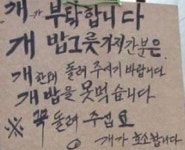 개가 부탁합니다
개 밥그릇 가져간분은
개한테 돌려 주시기 바랍니다
개 밥을 못먹습니다
※ 꼭 돌려 주십쇼
개가 호소합니다